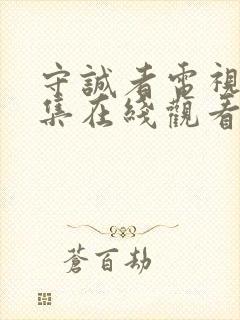 守誠者電視
集在綫觀看
蒼百劫